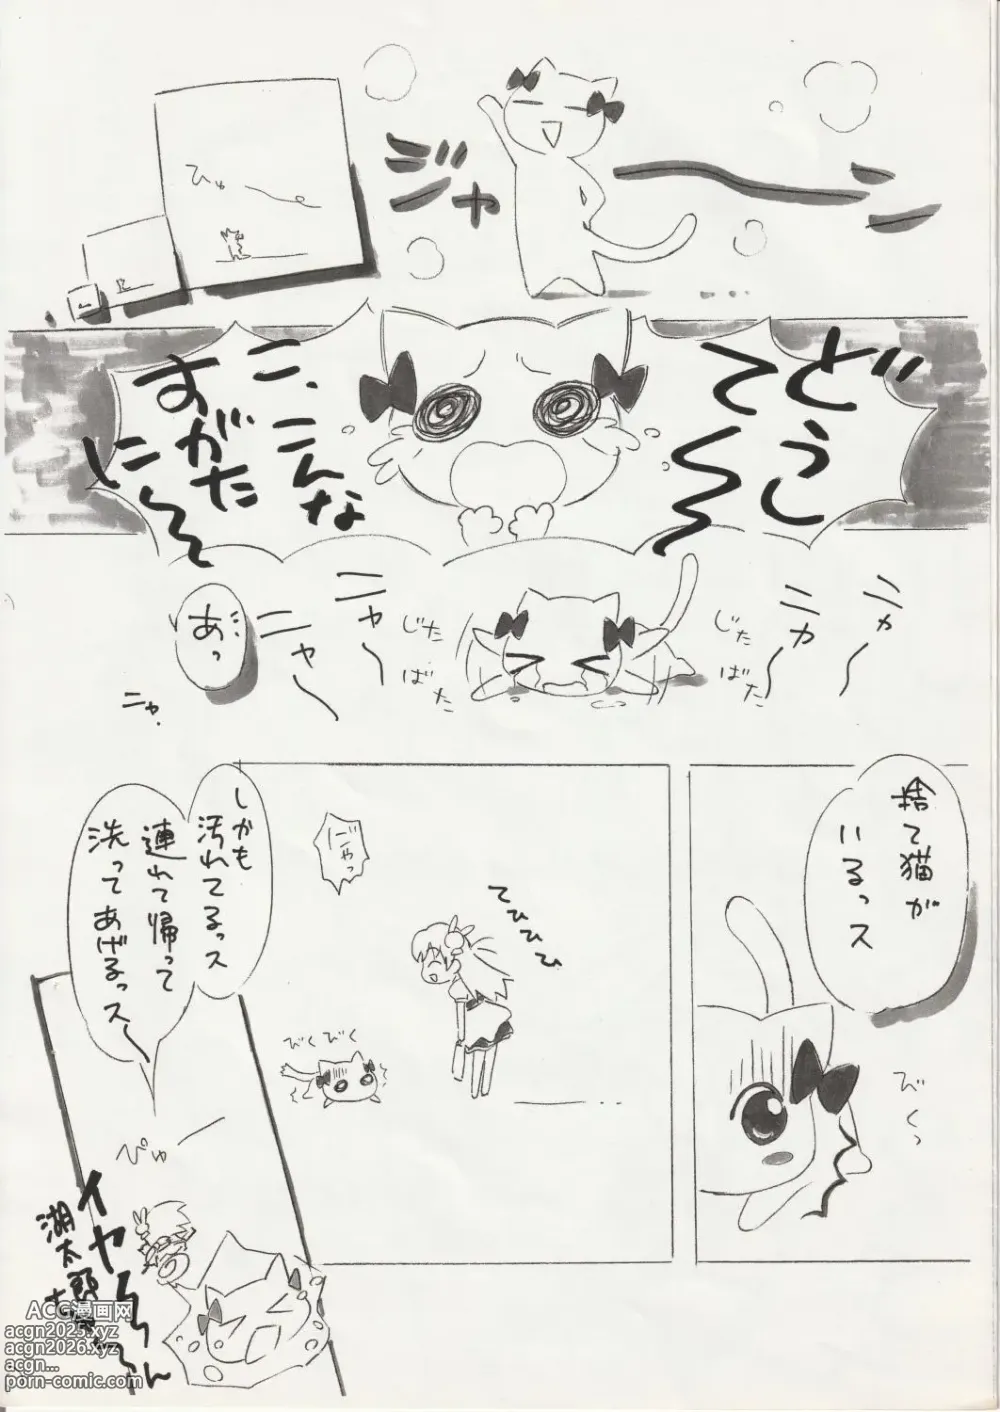 ジャーン
ひゅー
どうし
て〜〜
こ、こんな
すがた
に〜〜
ニャ〜
ニャ〜
じた
ばた
じた
ばた
ニャ〜
ニャ〜
あっ
ニャ、
捨て猫が
いるっス
びくっ
にゃっ
てひひひ
びくびく
しかも
汚れてるっス
連れて帰って
洗ってあげるっス〜
ぴゅー
イヤ〜〜ん
湖太郎
ACG漫画网
acgn2025.xyz
acgn2026.xyz
acgn...
porn-comic.com